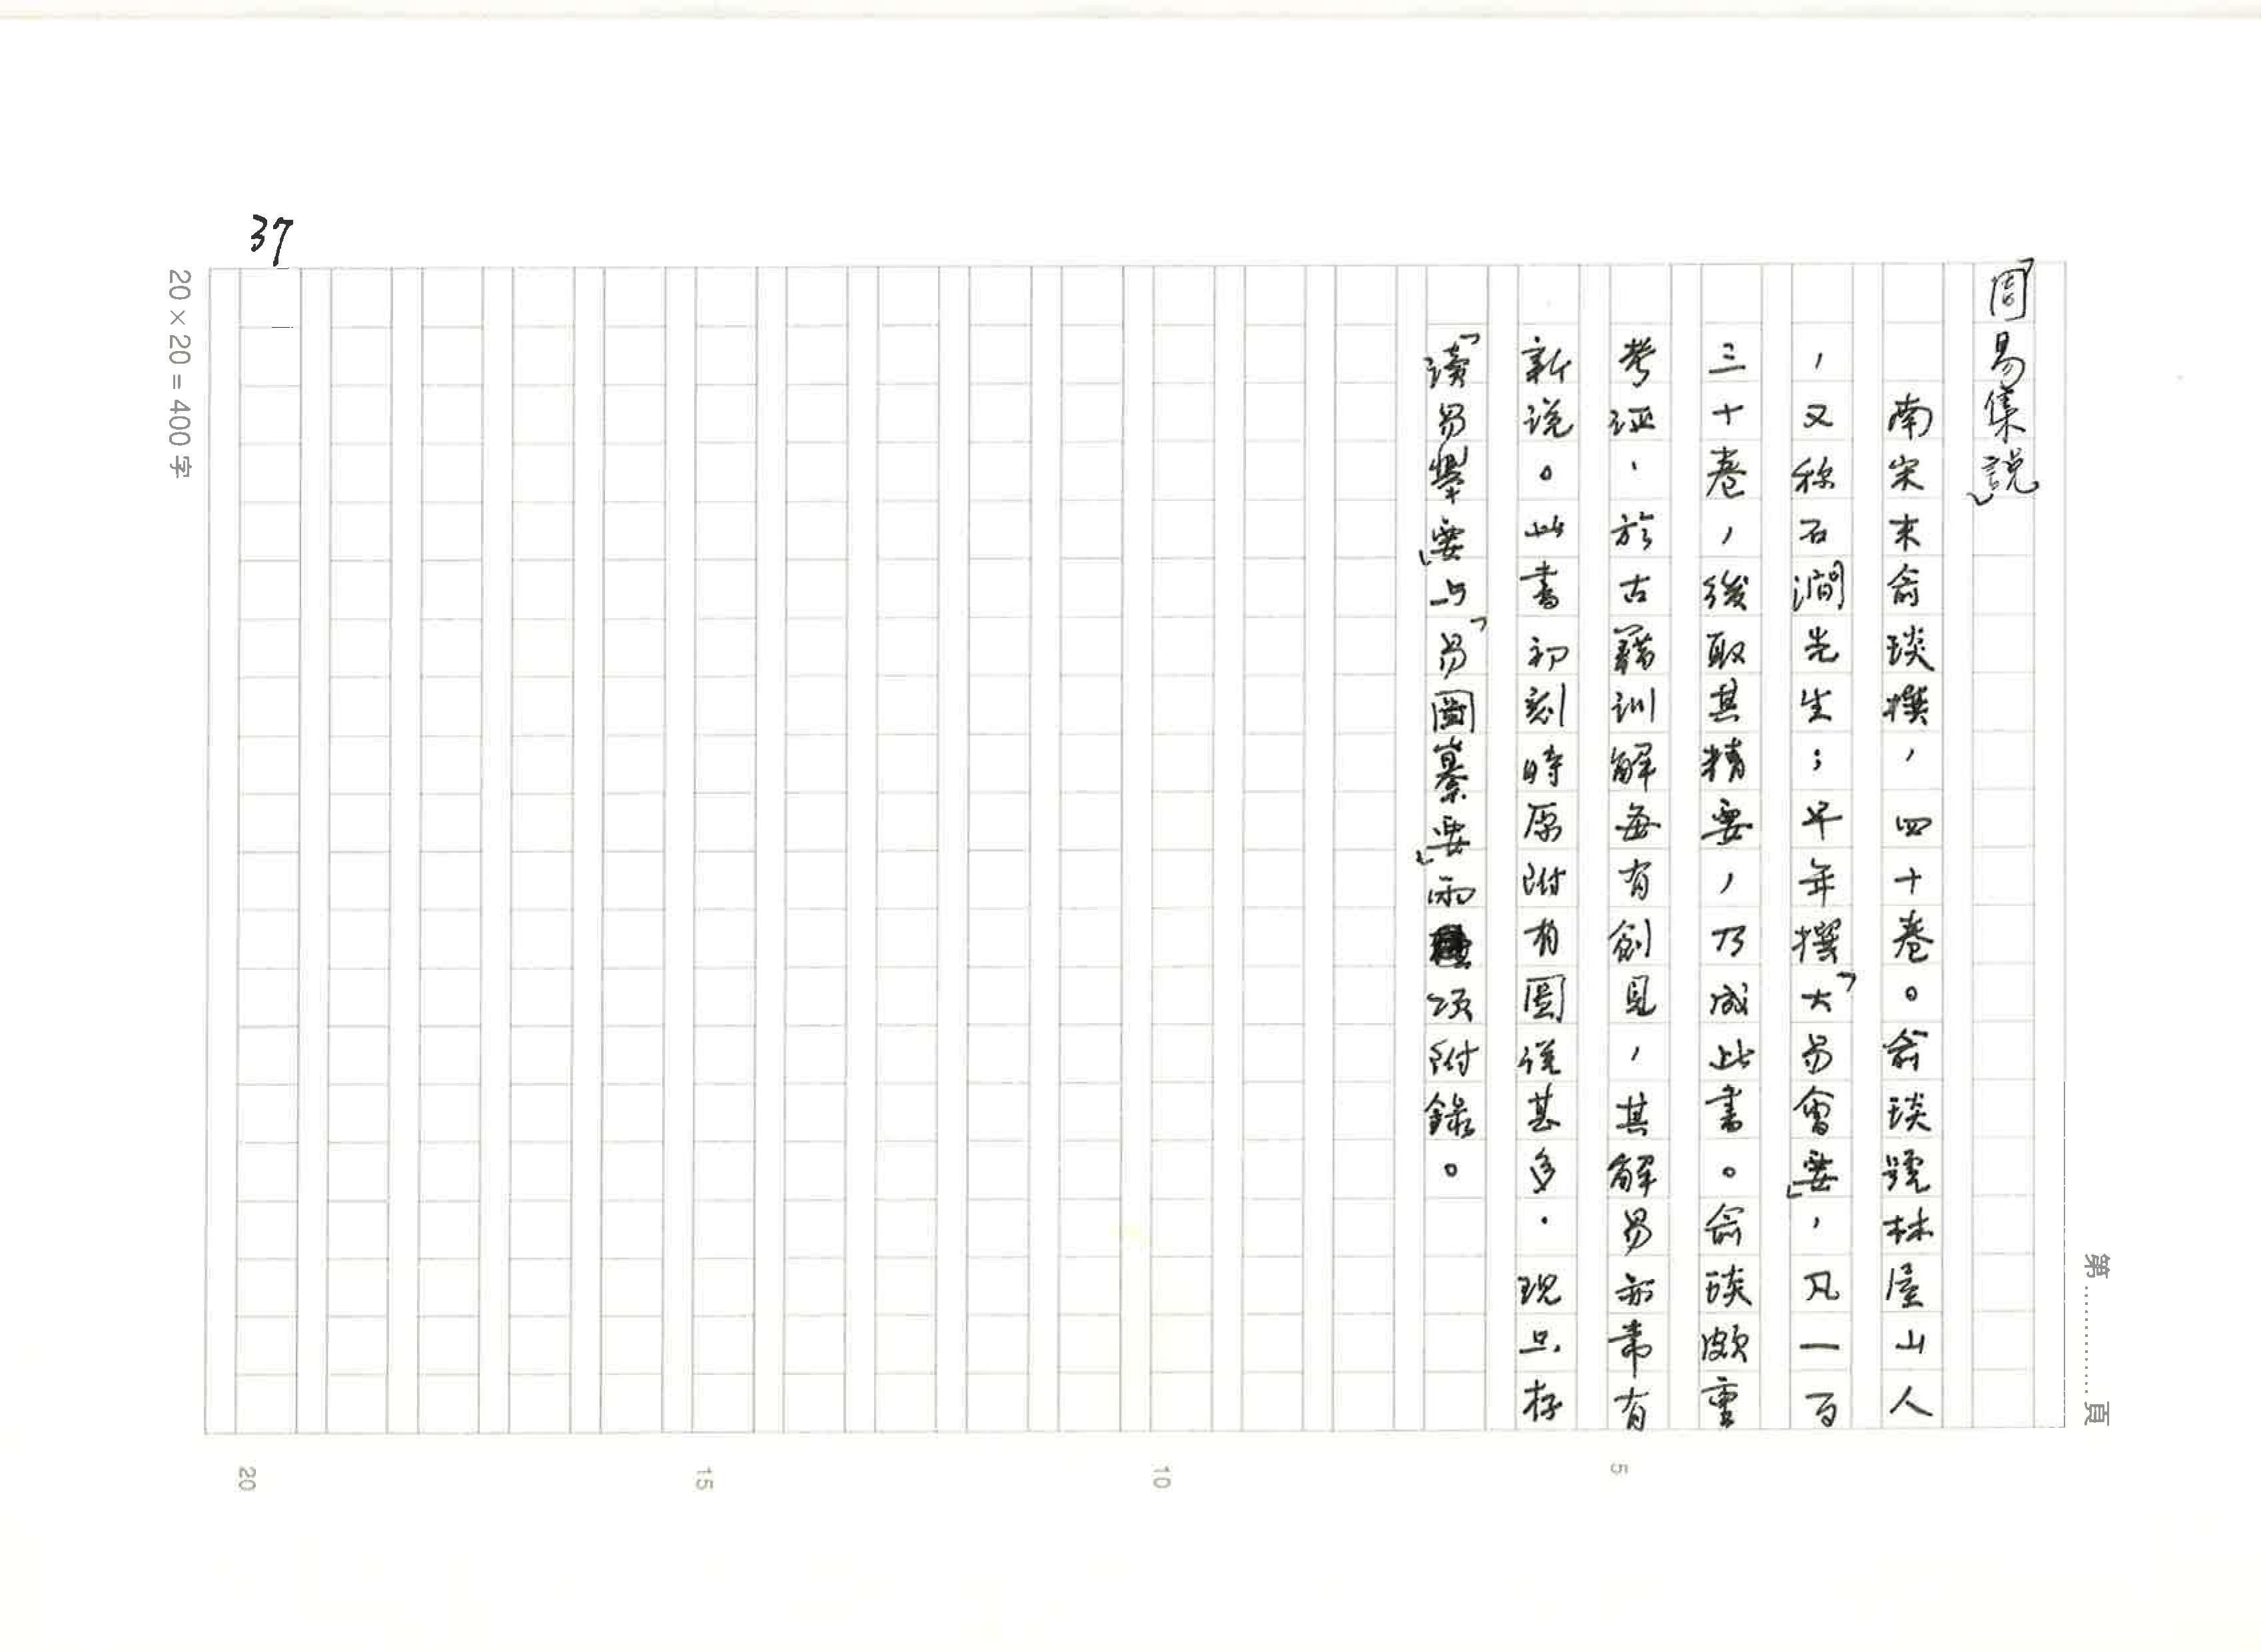 「周易集說」
南宋末俞琰撰，四十卷。俞琰號林屋山人
，又称石澗先生；早年撰「大易會要」，凡一百
三十卷，後取其精要，乃成此書。俞琰頗重
考证，於古籍训解每有創見，其解易亦常有
新说。此書初刻時原附有圖说甚多．现只存
「读易舉要」与「易圖纂要」兩项附錄。
37
20×20=400字
第............頁
5
10
15
20